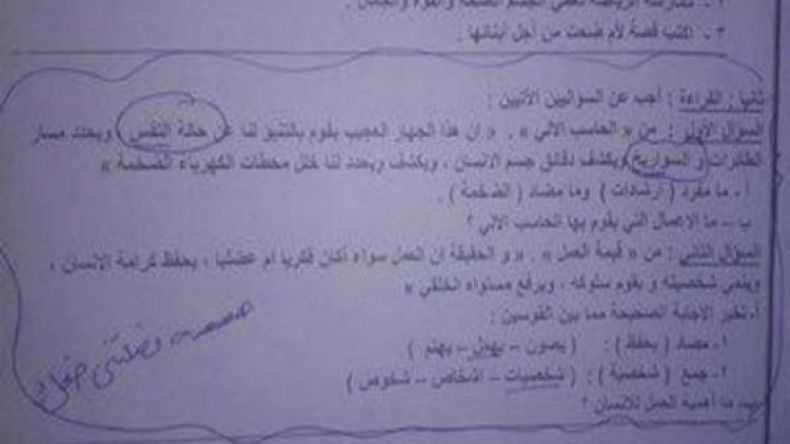 ٢ - ممارسة الرياضة تعطي الجسم الصحة والقوة والجمال .
٣ - اكتب قصة لأم ضحت من أجل أبنائها .
ثانيا : القراءة : أجب عن السؤاليين الآتيين :
السؤال الأول : من « الحاسب الالي » . « ان هذا الجهاز العجيب يقوم بالتنبؤ لنا عن حالة النفس ويحدد مسار
الطائرات و السواريخ ويكشف دقائق جسم الانسان ، ويكشف ويحدد لنا خلل محطات الكهرباء الضخمة »
أ - ما مفرد ( ارشادات ) وما مضاد ( الضخمة ) .
ب – ما الاعمال التي يقوم بها الحاسب الالي ؟
السؤال الثاني : من « قيمة العمل » . « و الحقيقة ان العمل سواء أكان فكريا ام عضليا ، يحفظ كرامة الانسان ،
وينمي شخصيته و يقوم سلوكه ، ويرفع مستواه الخلقي »
أ - تخير الاجابة الصحيحة مما بين القوسين :
١- مضاد ( يحفظ ) : ( يصون – يهمل – يهتم )
٢- جمع ( شخصية ) : ( شخصيات – اشخاص – شخوص )
ب- ما أهمية العمل للانسان ؟